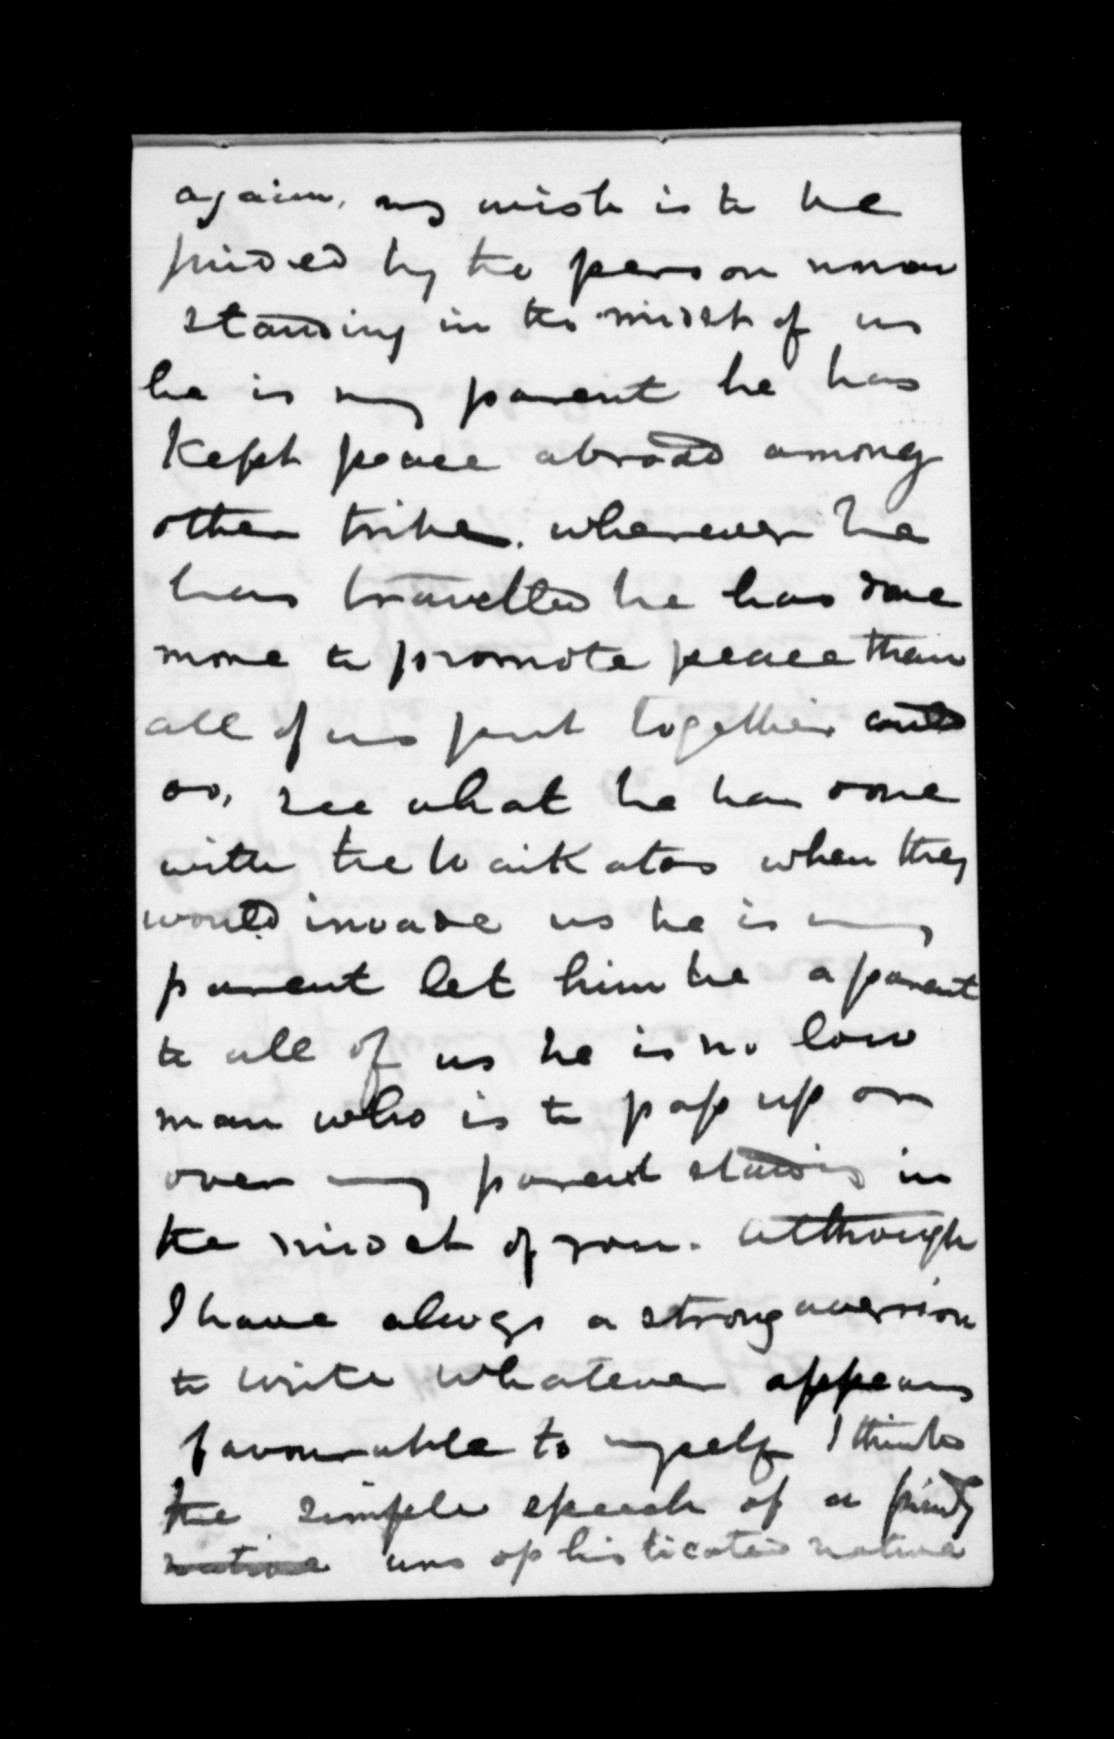 again, my wish is to be
guided by the person now
standing in the midst of us
he is my parent he has
kept peace abroad among
other tribes. wherever he
has travelled he has done
more to promote peace than
all of us put together could
do, see what he has done
with the Waikatos when they
would invade us he is my
parent let him be a parent
to all of us he is no low
man who is to pop up or
over my parent standing in
the midst of you. Although
I have always a strong aversion
to write whatever appears
favourable to myself I think
the simple speech of a friendly
native unsophisticated native